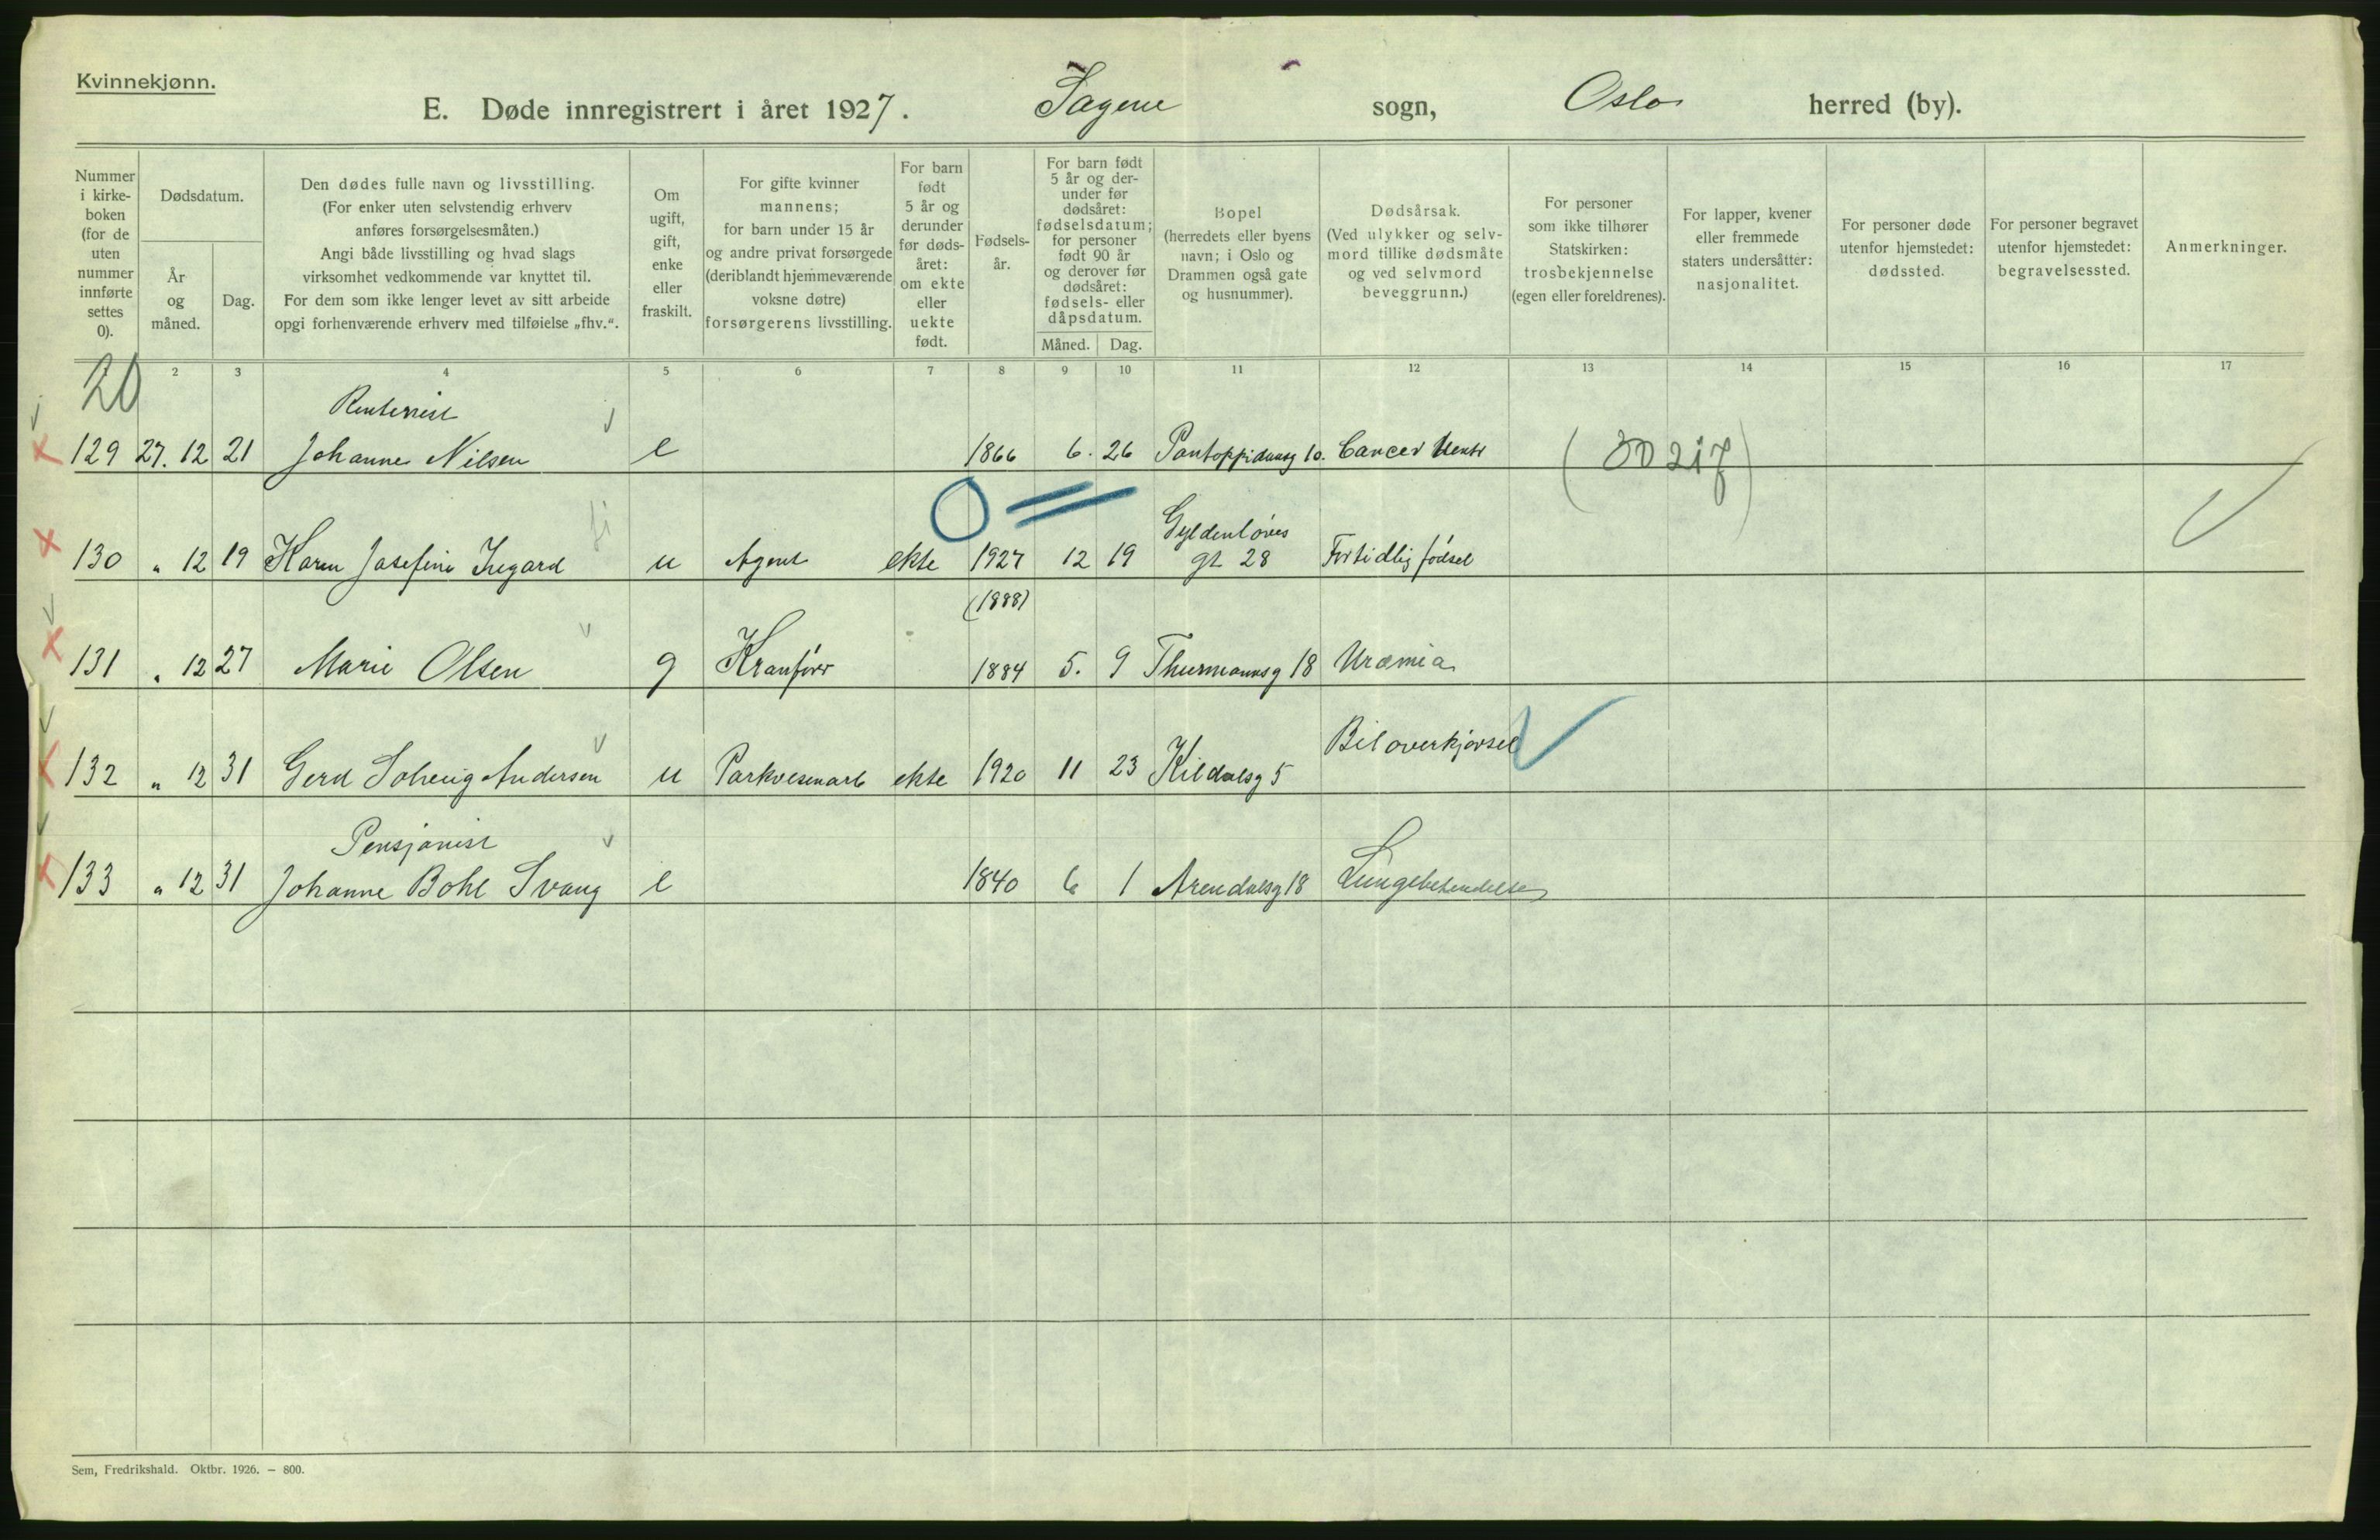 Kvinnekjønn.
E. Døde innregistrert i året 1927. Sagene sogn, Oslo herred (by).
Nummer i kirke- boken (for de uten nummer innførte settes 0).
Dødsdatum.
År og måned.
Dag.
Den dødes fulle navn og livsstilling.
(For enker uten selvstendig erhverv
anføres forsørgelsesmåten.)
Angi både livsstilling og hvad slags
virksomhet vedkommende var knyttet til.
For dem som ikke lenger levet av sitt arbeide
opgi forhenværende erhverv med tilføielse „fhv.“.
Om ugift, gift, enke eller fraskilt.
For gifte kvinner
mannens;
for barn under 15 år
og andre privat forsørgede
(deriblandt hjemmeværende
voksne døtre)
forsørgerens livsstilling.
For barn født 5 år og derunder før døds- året: om ekte eller uekte født.
Fødsels- år.
For barn født
5 år og der-
under før
dødsåret:
fødselsdatum;
for personer
født 90 år
og derover før
dødsåret:
fødsels- eller
dåpsdatum.
Måned. Dag.
Bopel
(herredets eller byens
navn; i Oslo og
Drammen også gate
og husnummer).
Dødsårsak.
(Ved ulykker og selv-
mord tillike dødsmåte
og ved selvmord
beveggrunn.)
For personer
som ikke tilhører
Statskirken:
trosbekjennelse
(egen eller foreldrenes).
For lapper, kvener
eller fremmede
staters undersåtter:
nasjonalitet.
For personer døde
utenfor hjemstedet:
dødssted.
For personer begravet
utenfor hjemstedet:
begravelsessted.
Anmerkninger.
20 2 3 4 5 6 7 8 9 10 11 12 13 14 15 16 17
Renterist
129 27. 12 21 Johanne Nilsen e 1866 6. 26 Pantoppidansg 10. Cancer Ventr (30217)
Gyldenløves
130 " 12 19 Karen Josefine Isegard u Agent ekte 1927 12 19 gt 28 Fortidlig fødsel
(1888)
131 " 12 27 Marie Olsen g Kranfører 1884 5. 9 Thurmannsg 18 Uræmia
Biloverkjørsel
132 " 12 31 Gerd Solveig Andersen u Parkvesenarb ekte 1920 11 23 Kildalsg 5
Pensjonist
133 " 12 31 Johanne Bohl Svang e 1840 6 1 Arendalsg 18 Lungebetendelse
Sem, Fredrikshald. Oktbr. 1926. – 800.